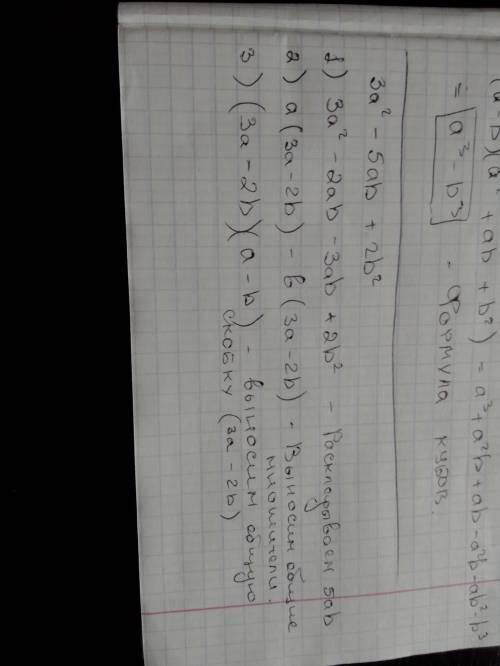 (a-b)(a² + ab + b²) = a³ + a²b + ab - a²b - ab² - b³
= a³ - b³ - Формула кубов.
3a² - 5ab + 2b²
1) 3a² - 2ab - 3ab + 2b² - Раскладываем 5ab
2) a(3a-2b) - b(3a-2b) - Выносим общие
множители.
3) (3a-2b)(a-b) - выносим общую
скобку (3a-2b)